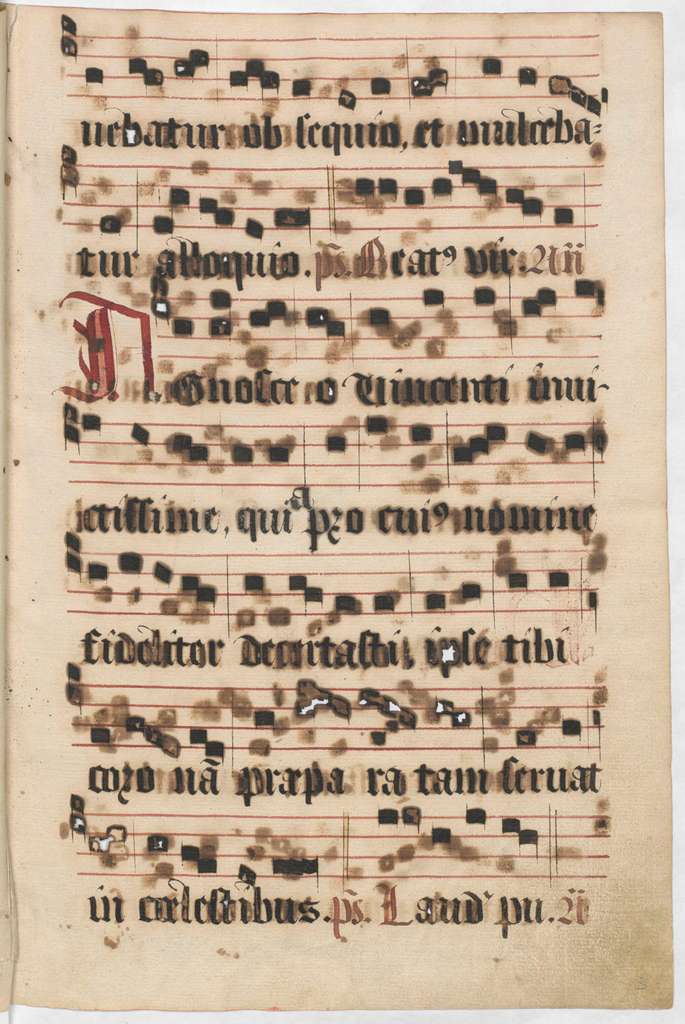 uebatur ob sequio, et mulceba=
tur alloquio. ps. Beatꝰ vir. An̄
AGnosce o Vincenti inui-
ctissime, quia pro cuiꝰ nomine
fideliter decertasti, ipse tibi
coro nā præpa ra tam seruat
in cœlestibus. ps. Laud pu. A